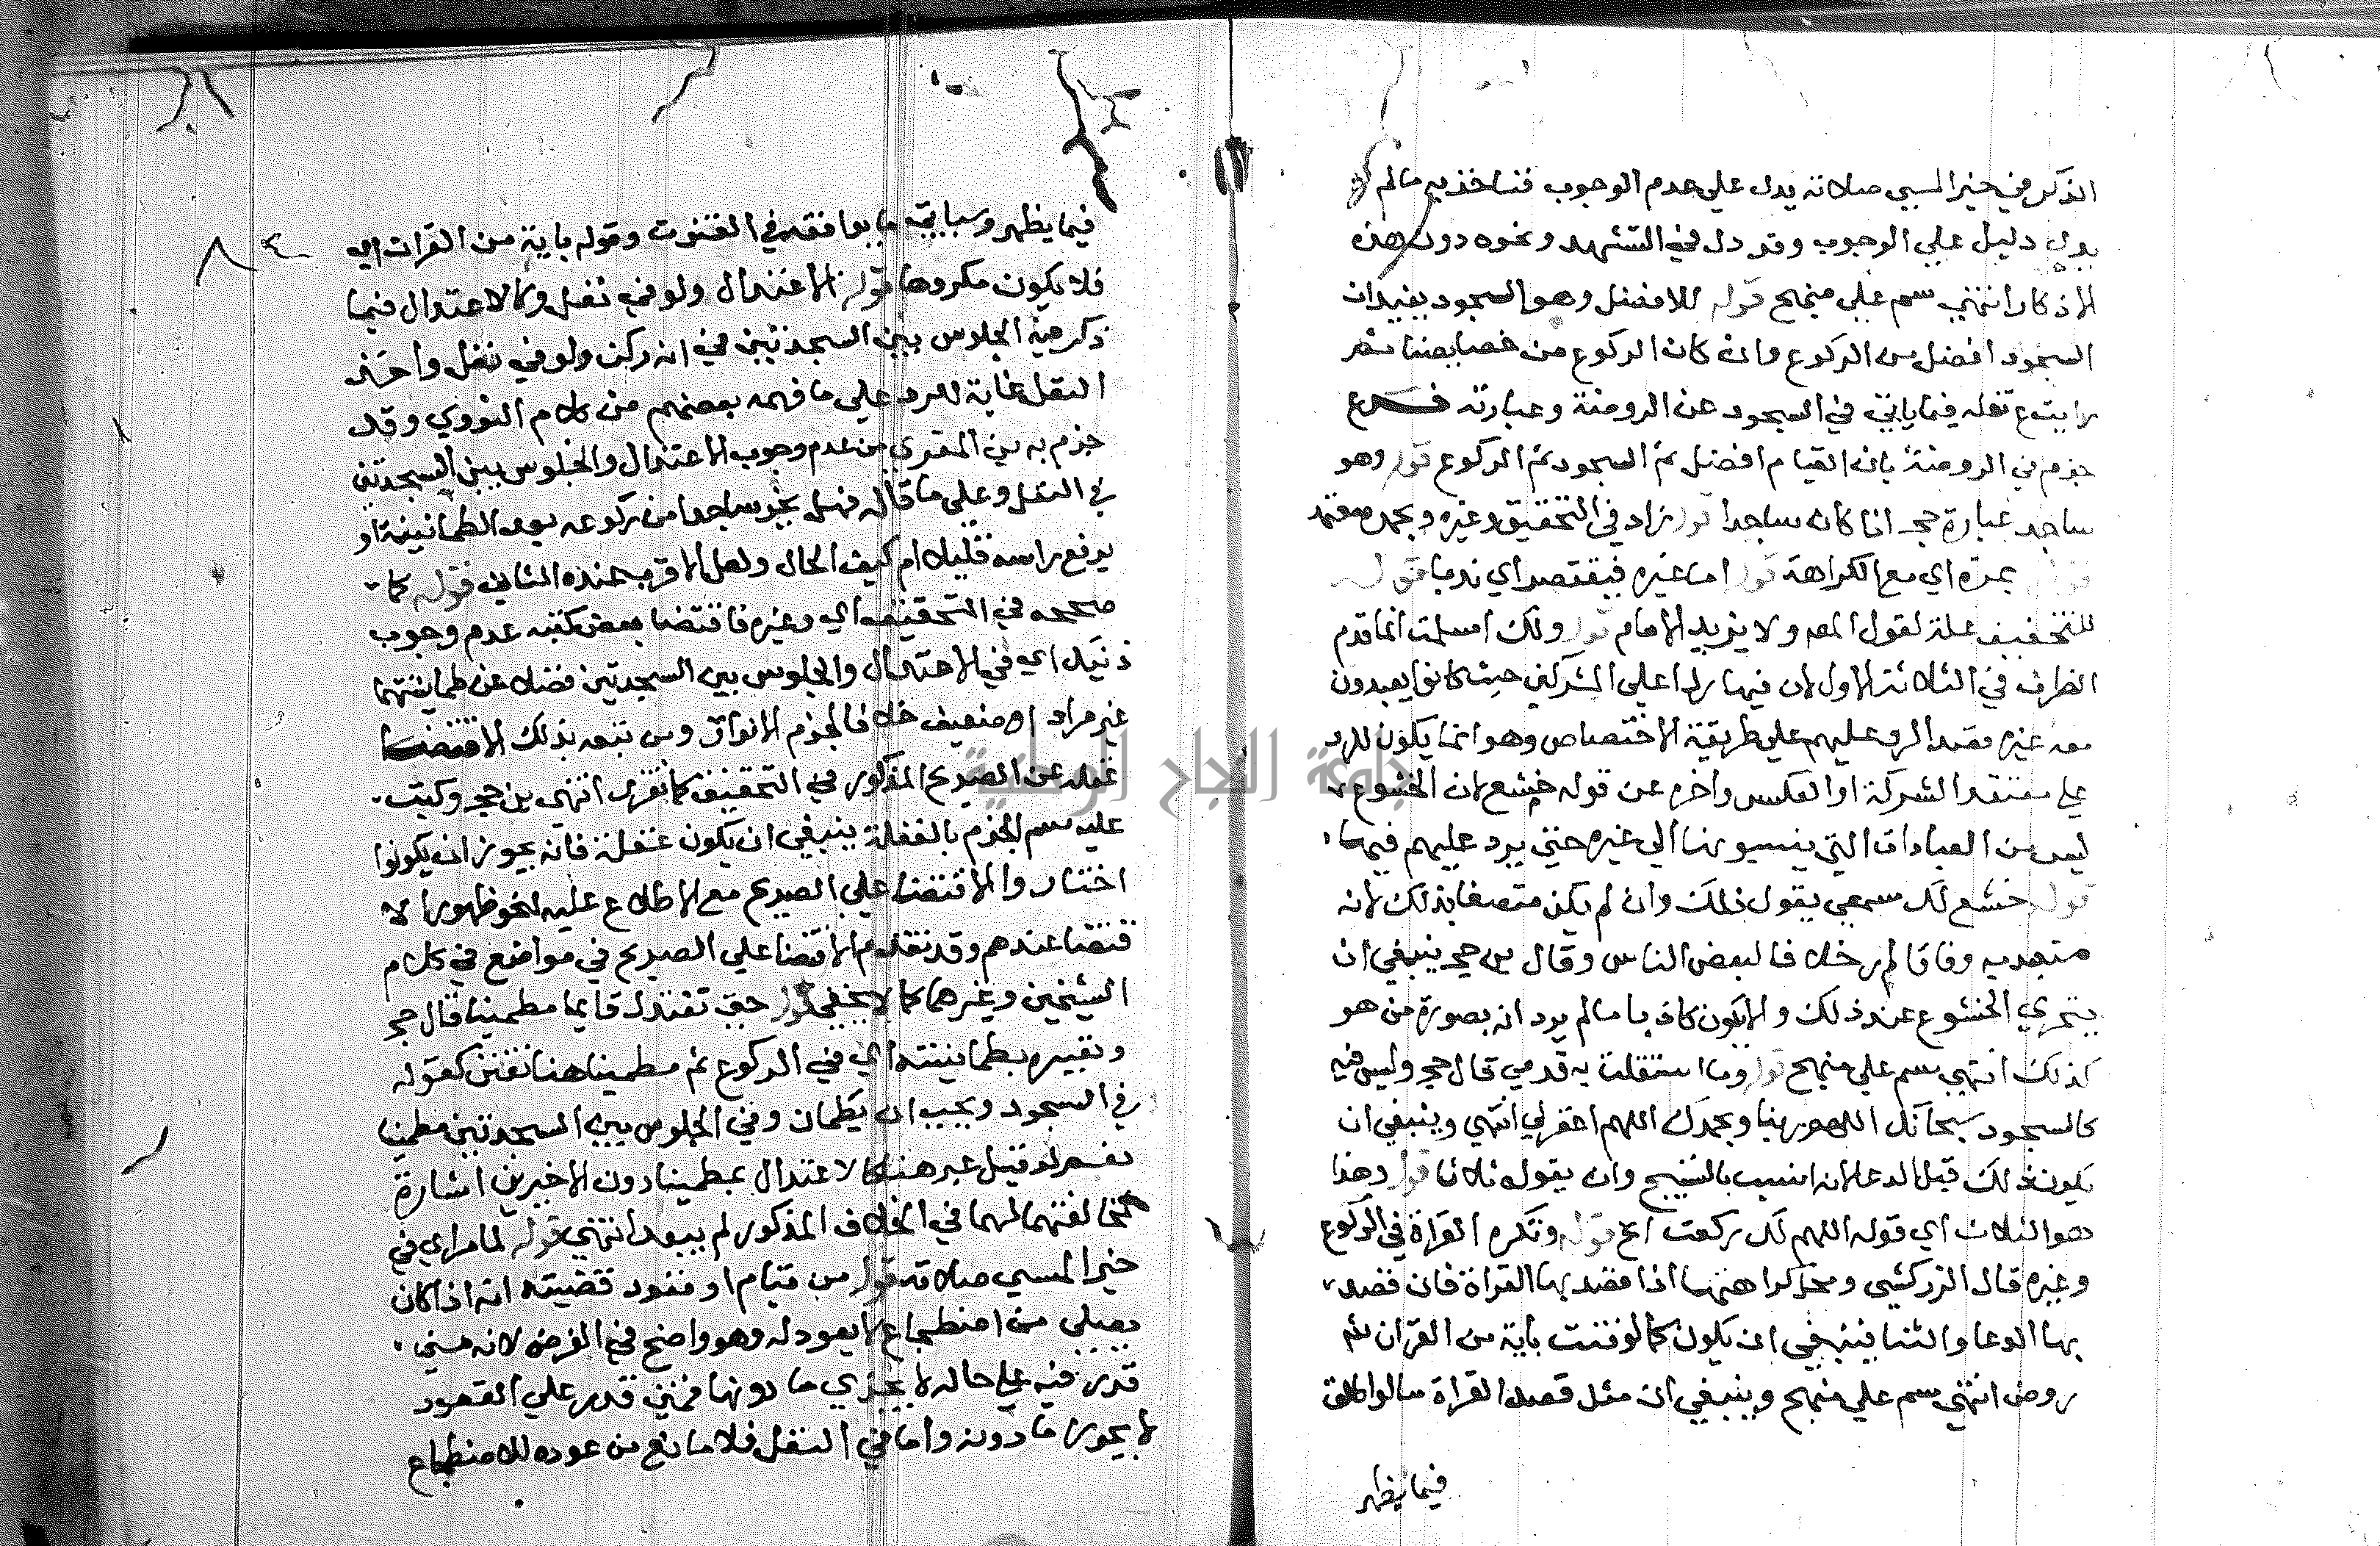 الذكر في خبر المسي صلاته يدل علي عدم الوجوب فناخذ به ما لم
يدل دليل علي الوجوب وقد دل في التشهد ونحوه دون هذه
الاذكار انتهي سم علي منهج قوله للافضل وهو السجود يفيد ان
السجود افضل من الركوع وان كان الركوع من خصايصنا ثم
رايت ع نقله فيما ياتي في السجود عن الروضة وعبارته فرع
جزم في الروضة بان القيام افضل ثم السجود ثم الركوع قوله وهو
ساجد عبارة حج اذا كان ساجدا قوله زاد في التحقيق وغيره وبحمده معتمد
قوله بمرة اي مع الكراهة قوله اما غيره فيقتصر اي ندبا قوله
للتخفيف علة لقول المص ولا يزيد الامام قوله ولك اسلمت انما قدم
الظرف في الثلاثة الاول لان فيها ردا علي المشركين حيث كانوا يعبدون
معه غيره فقصد الرد عليهم علي طريقة الاختصاص وهو انما يكون للرد
علي معتقد الشركة او العكس واخره عن قوله خشع لان الخشوع
ليس من العبادات التي ينسبونها الي غيره حتي يرد عليهم فيها
قوله خشع لك سمعي يقول ذلك وان لم يكن متصفا بذلك لانه
متعبد به وفاقا لم ر خلافا لبعض الناس وقال بن حج ينبغي ان
يتحري الخشوع عند ذلك والا يكون كاذبا ما لم يرد انه بصورة من هو
كذلك انتهي سم علي منهج قوله وما استقلت به قدمي قال حج وليس فيه
كالسجود سبحانك اللهم ربنا وبحمدك اللهم اغفر لي انتهي وينبغي ان
يكون ذلك قبل الدعا لانه انسب بالتسبيح وان يقوله ثلاثا قوله وهذا
هو الثلاث اي قوله اللهم لك ركعت الخ قوله وتكره القراة في الركوع
وغيره قال الزركشي ومحل كراهتها اذا قصد بها القراة فان قصد
بها الدعا والثنا فينبغي ان يكون كما لو قنت باية من القران شم
روض انتهي سم علي منهج وينبغي ان مثل قصد القراة ما لو اطلق
فيما يظهر
٨٤
فيما يظهر وسياتي ما يوافقه في القنوت وقوله باية من القران اي
فلا يكون مكروها قوله الاعتدال ولو في نفل وكالاعتدال فيما
ذكر فيه الجلوس بين السجدتين في انه ركن ولو في نفل واخذ
النفل غاية للرد علي ما فهمه بعضهم من كلام النووي وقد
جزم به بن المقري من عدم وجوب الاعتدال والجلوس بين السجدتين
في النفل وعلي ما قاله فهل يخر ساجدا من ركوعه بعد الطمانينة او
يرفع راسه قليلا ام كيف الحال ولعل الاقرب عنده الثاني قوله كما
صححه في التحقيق اي وغيره فاقتضا بعض كتبه عدم وجوب
ذينك اي في الاعتدال والجلوس بين السجدتين فضلا عن طمانينتهما
غير مراد او ضعيف خلافا لجزم الانوار ومن تبعه بذلك الاقتضا
غفله عن الصريح المذكور في التحقيق كما تقرر انتهي بن حج وكتب
عليه سم الجزم بالغفلة ينبغي ان يكون غفلة فانه يجوز ان يكونوا
اختاروا الاقتضا علي الصريح مع الاطلاع عليه لنحو ظهور الا
قتضا عندهم وقد تقدم الاقتضا علي الصريح في مواضع في كلام
الشيخين وغيرهما كما لا يخفي قوله حتي تعتدل قايما مطمينا قال حج
وتعبيره بطمانينته اي في الركوع ثم مطمينا هنا تفنن كقوله
في السجود ويجب ان يطمان وفي الجلوس بين السجدتين مطمينا
نعم لو قيل عبر هنا كالاعتدال بمطمينا دون الاخيرين اشارة
لمخالفتهما لهما في الخلاف المذكور لم يبعد انتهي قوله لما مر اي في
خبر المسي صلاته قوله من قيام او قعود قضيته انه اذا كان
يصلي من اضطجاع لا يعود له وهو واضح في الفرض لانه متي
قدر فيه علي حاله لا يجزي ما دونها فمتي قدر علي القعود
لا يجوز ما دونه واما في النفل فلا مانع من عوده للاضطجاع